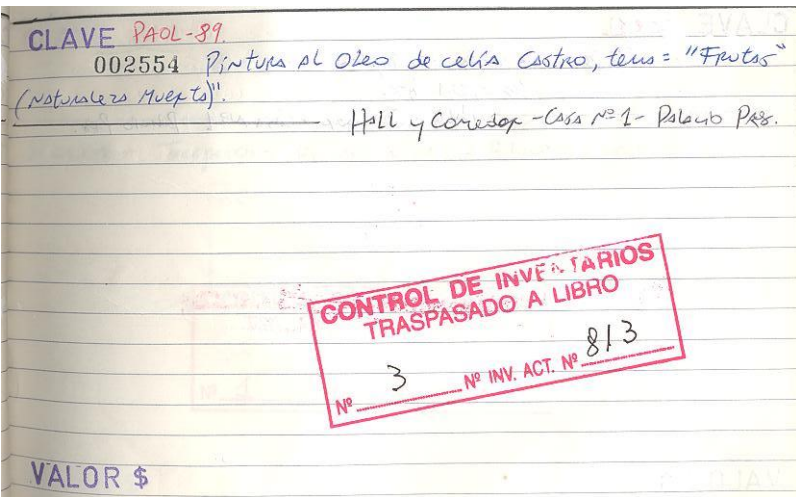 CLAVE PAOL-89.
002554 Pintura al Oleo de celia Castro, tema = "Frutas"
(Naturaleza Muerta)".
Hall y Comedor - Casa Nº 1 - Palacio Pres.
CONTROL DE INVENTARIOS
TRASPASADO A LIBRO
Nº 3 Nº INV. ACT. Nº 813
VALOR $